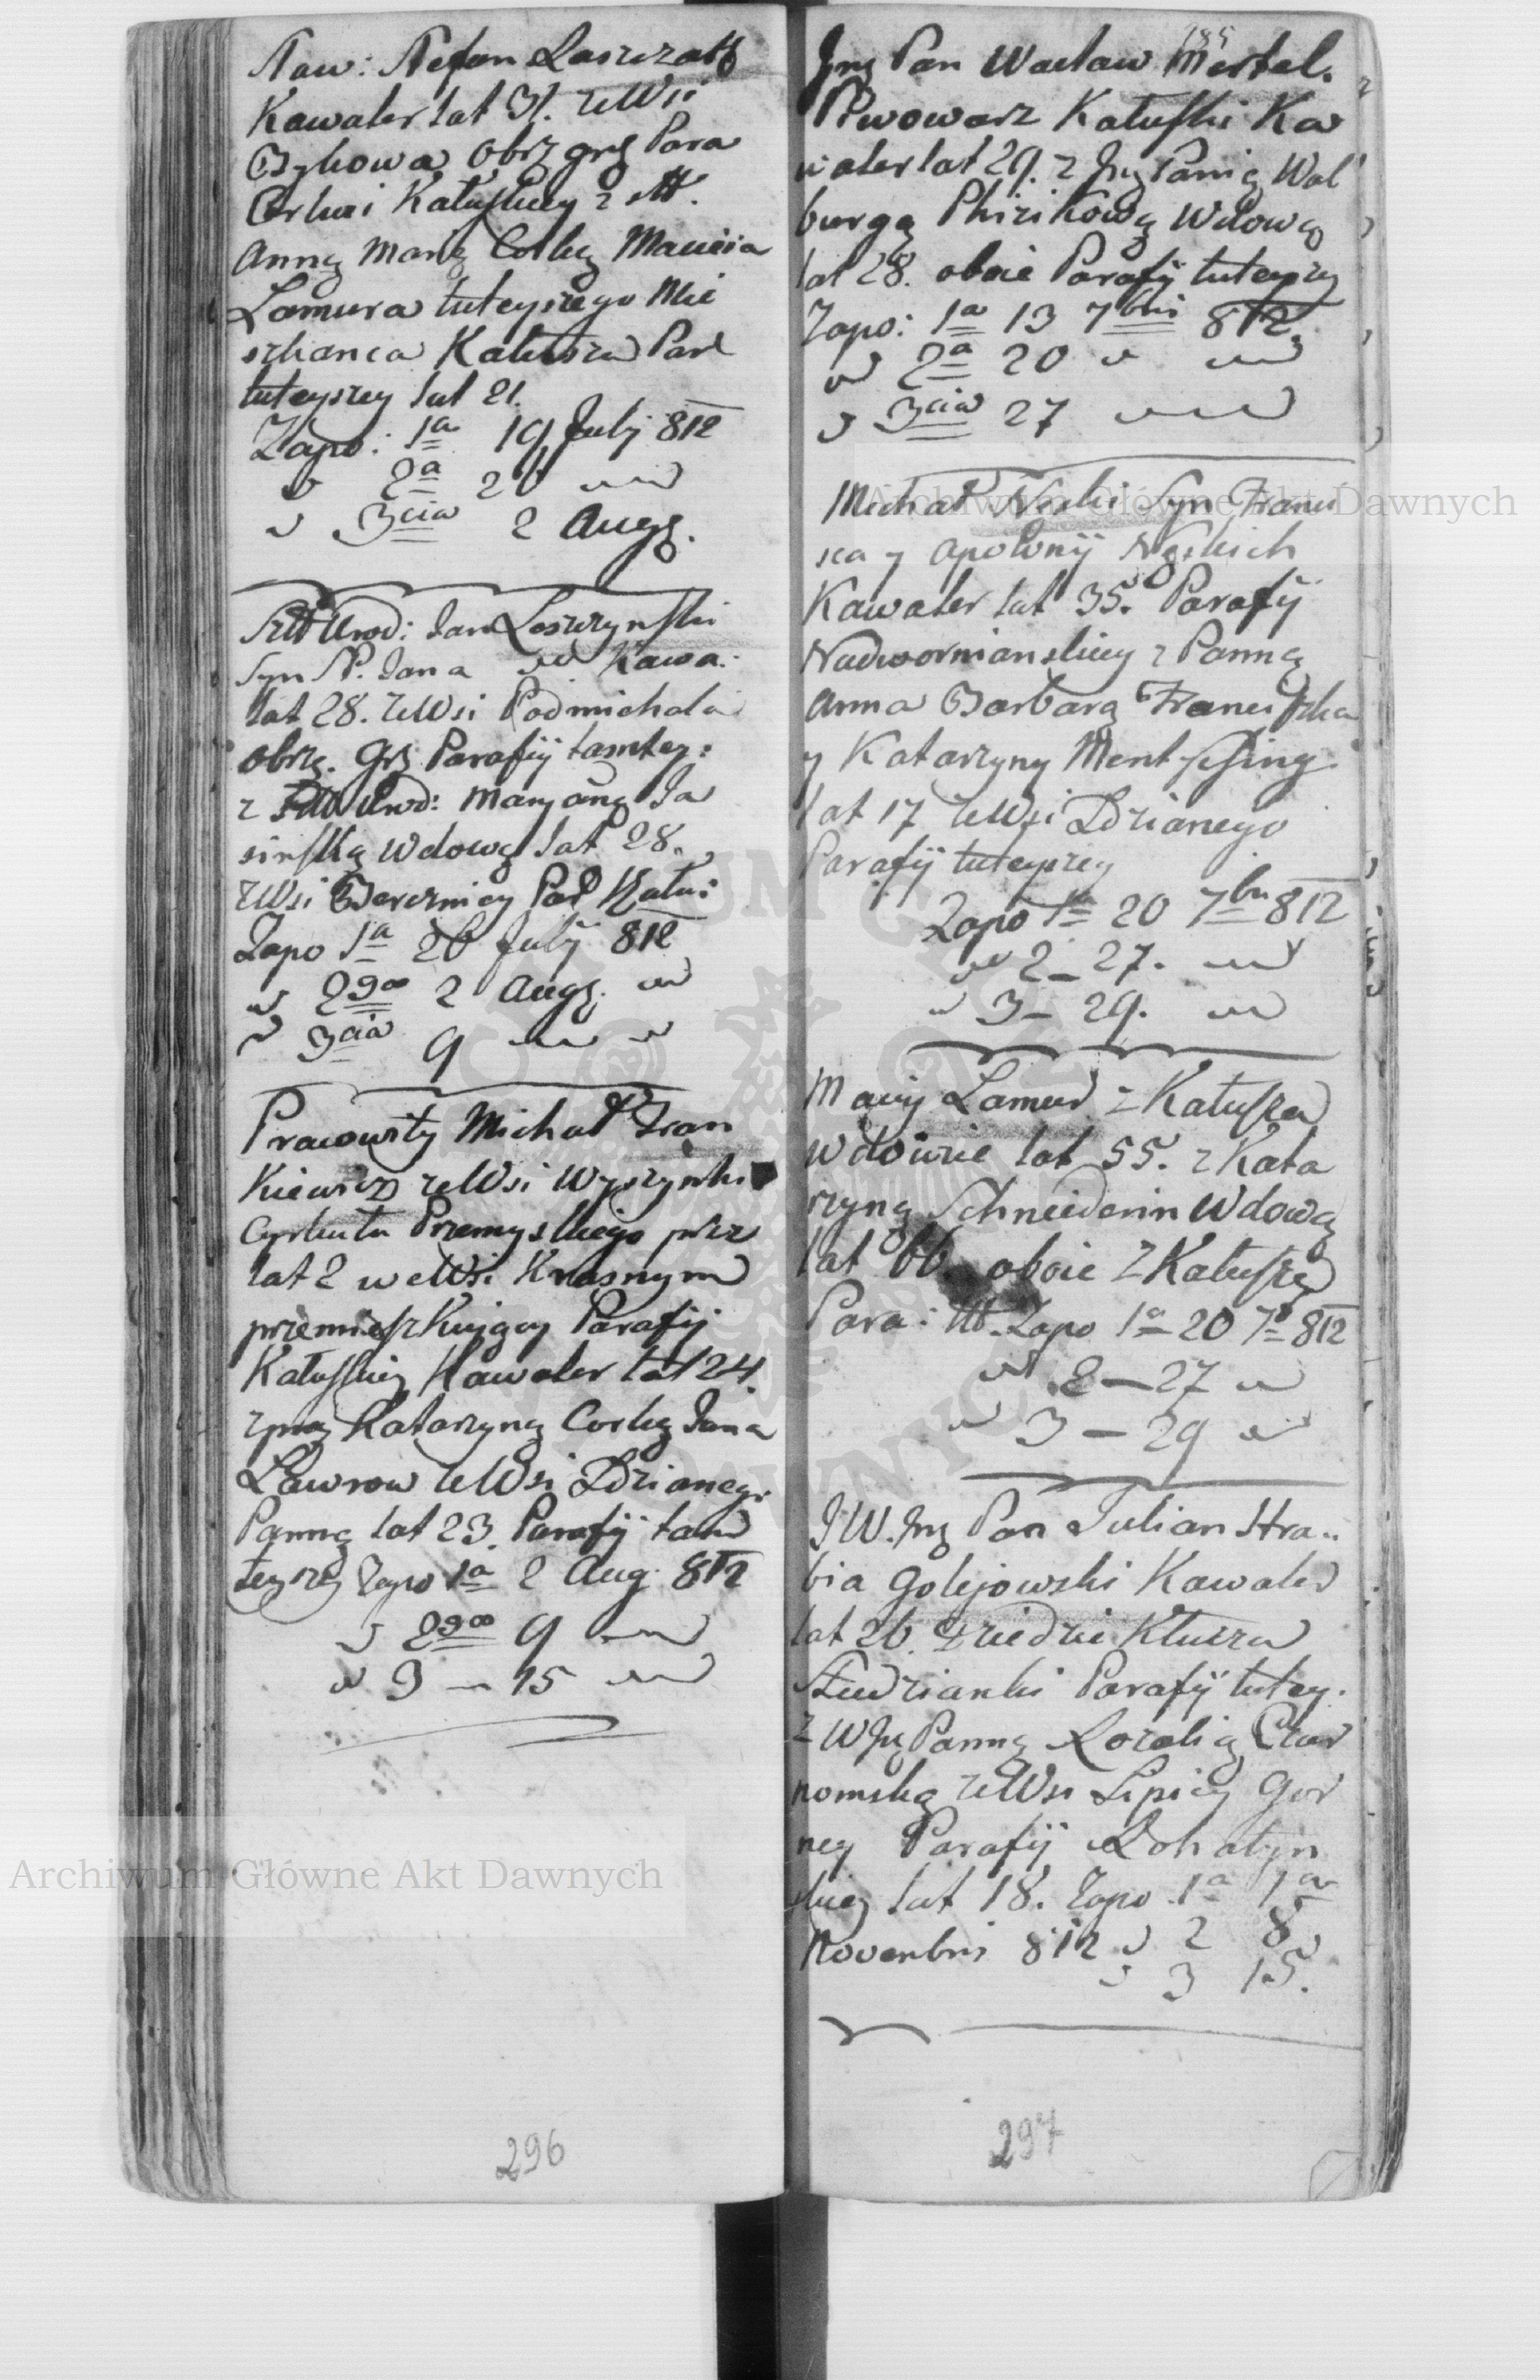 Staw: Stefan Laszczath
Kawaler lat 31. zeWsi
Bykowa obrz grg Para
Cerkwi Katuskiey z
Anną Marią Corką Macieia
Lamura tuteyszego Mie
szkanca Katusza Par
tuteyszey lat 21.
Zapo: 1a 19 Julij 812
2a 26
3cia 2 Augs.
Urod: Jan Leszczynski
Syn Jana Kawa:
lat 28. zeWsi Podmichala
obrz. Grg Parafij tamtey:
z Urod: Maryaną Ja
sinską Wdową lat 28.
zWsi Bereznicy Par Katu:
Zapo 1a 26 Julij 812
2go 2 Augs.
3cia 9
Pracowity Michał Fran
Kiewicz zeWsi Wyszynki
Cyrkułu Przemyskiego przez
lat 2 weWsi Krasnym
przemieszkuiący Parafij
Katuskiey Kawaler lat 24.
z Katarzyną Corką Jana
Ławrow zeWsi Ldzianego
Panną lat 23. Parafij tam
teyszey Zapo 1a 2 Aug: 812
2go 9
3 – 15
296
185
Jmg Pan Wacław Mertel.
Piwowarz Katuski Ka
waler lat 29. z Jmg Panią Wal
burgą Phizikową Wdową
lat 28. oboie Parafij tuteyszey
Zapo: 1a 13 7bris 812
2a 20
3cia 27
Michał Neski Syn Franci
sca y Apolonij Neskich
Kawaler lat 35. Parafij
Nadwornianskiey z Panną
Anna Barbarą Franciszka
y Katarzyny Ment
lat 17 zeWsi Ldzianego
Parafij tuteyszey
Zapo 1a 20 7bri 812
2 – 27.
3 – 29.
Maciy Lamur z Katusza
Wdowiec lat 55. z Kata
rzyną Schneiderin Wdową
lat 66 oboie z Katusza
Para: Zapo 1a – 20 7 812
2 – 27
3 – 29
JW. Jmg Pan Julian Hra..
bia Golejowski Kawaler
lat 26. Dziedzic Klucza
Studzianki Parafij tutey.
z WJm Panną Rozalią Czar
nomską zeWsi Lipicy Gor
ney Parafij Rohatyn
skiey lat 18. Zapo 1a 1a
Novembris 812 2 8
3 15.
297
Archiwum Główne Akt Dawnych
Archiwum Główne Akt Dawnych